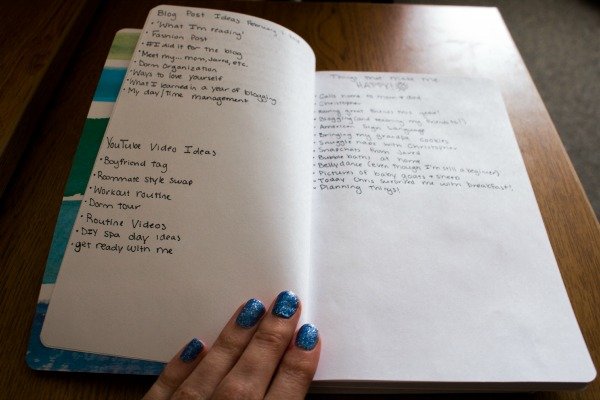 Blog Post Ideas February
• "What I'm reading"
• Fashion Post
• #I did it for the blog
• Meet my... mom, Jared, etc.
• Dorm Organization
• Ways to love yourself
• What I learned in a year of blogging
• My day/Time management
YouTube Video Ideas
• Boyfriend tag
• Roommate style swap
• Workout routine
• Dorm tour
• Routine Videos
• DIY spa day ideas
• get ready with me
Things that make me
HAPPY!
• Calls home to mom + dad
• Christopher
• great this year!
• Blogging (and reading my friends!!)
• American Sign Language
• Bringing my grandpa cookies
• Snuggle naps with Christopher
• Snapchats from Jared
• Bubble baths at home
• Bellydance (even though I'm still a beginner)
• Pictures of baby goats +
• Today Chris surprised me with breakfast!
• Planning things!